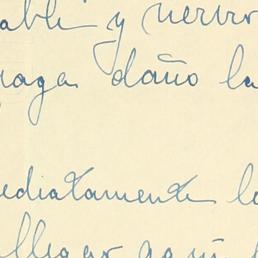 able y nervio
haga daño la
mediatamente lo
llegar aquí